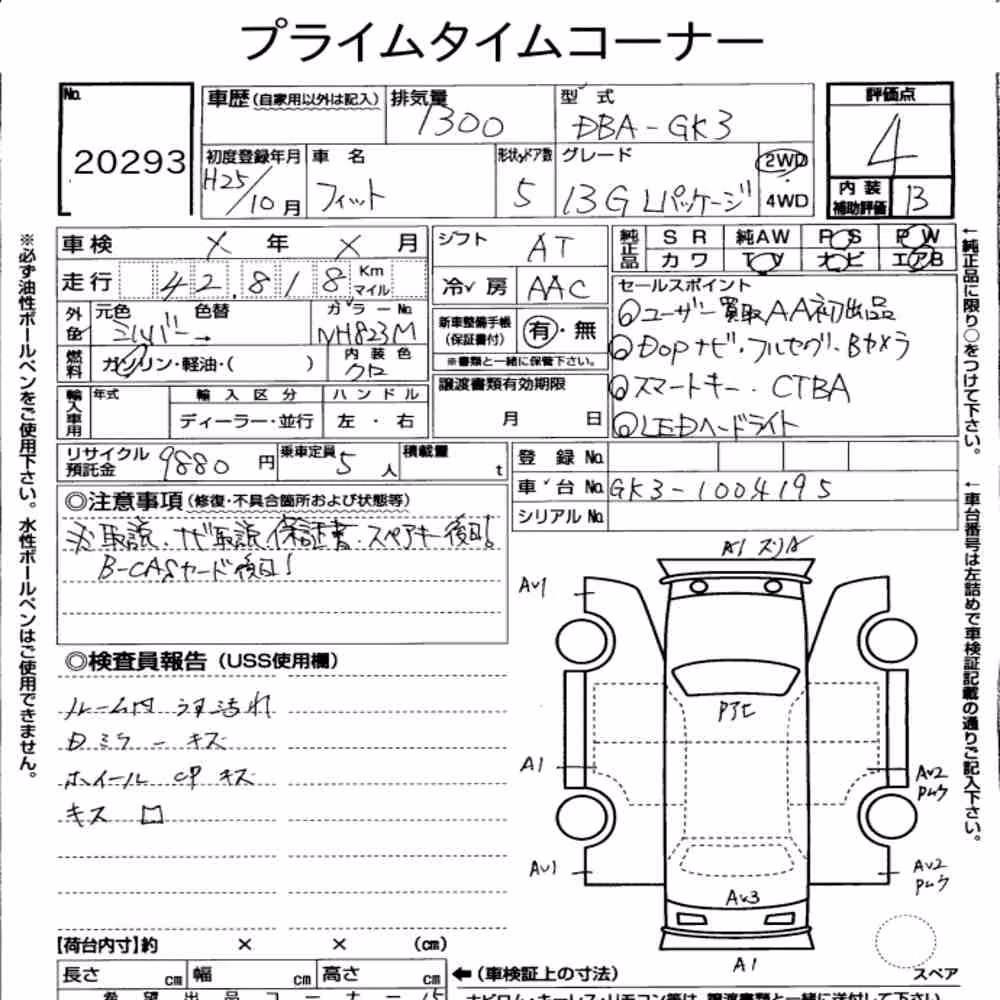 プライムタイムコーナー
No. 20293
車歴(自家用以外は記入) 排気量 1300 型式 DBA-GK3
初度登録年月 H25/10月 車名 フィット 形状ドア数 5 グレード 13G Lパッケージ 2WD 4WD
評価点 4
内装補助評価 B
車検 X年 X月
走行 42,818 Km マイル
外色 元色 シルバー 色替 → カラーNo. NH823M
燃料 ガソリン・軽油・( ) 内装色 クロ
輸入車用 年式 輸入区分 ディーラー・並行 ハンドル 左・右
シフト AT
冷房 AAC
新車整備手帳(保証書付) 有・無
※書類と一緒に保管下さい。
譲渡書類有効期限 月 日
純正品 SR 純AW PS PW
カワ TV ナビ エアB
セールスポイント
◎ユーザー買取AA初出品
◎Dopナビ・フルセグ・Bカメラ
◎スマートキー・CTBA
◎LEDヘッドライト
リサイクル預託金 9880円 乗車定員 5人 積載量 t
登録No.
車台No. GK3-1004195
シリアルNo.
◎注意事項(修復・不具合箇所および状態等)
※取説・ナビ取説 保証書・スペアキー後日!
B-CASカード後日!
◎検査員報告(USS使用欄)
ルーム内 うす汚れ
Dミラー キズ
ホイール CP キズ
キズ
A1 スリキズ
AU1
Pアヒ
A1
AU2
PUウ
AU1
AU2
PUウ
AU3
A1
スペア
【荷台内寸】約 × × (cm)
長さ cm 幅 cm 高さ cm ←(車検証上の寸法)
希望出品コーナー
ナビロム・キーレス・リモコン等は、譲渡書類と一緒に送付して下さい
※必ず油性ボールペンをご使用下さい。水性ボールペンはご使用できません。
←純正品に限り○をつけて下さい。
←車台番号は左詰めで車検証記載の通りご記入下さい。